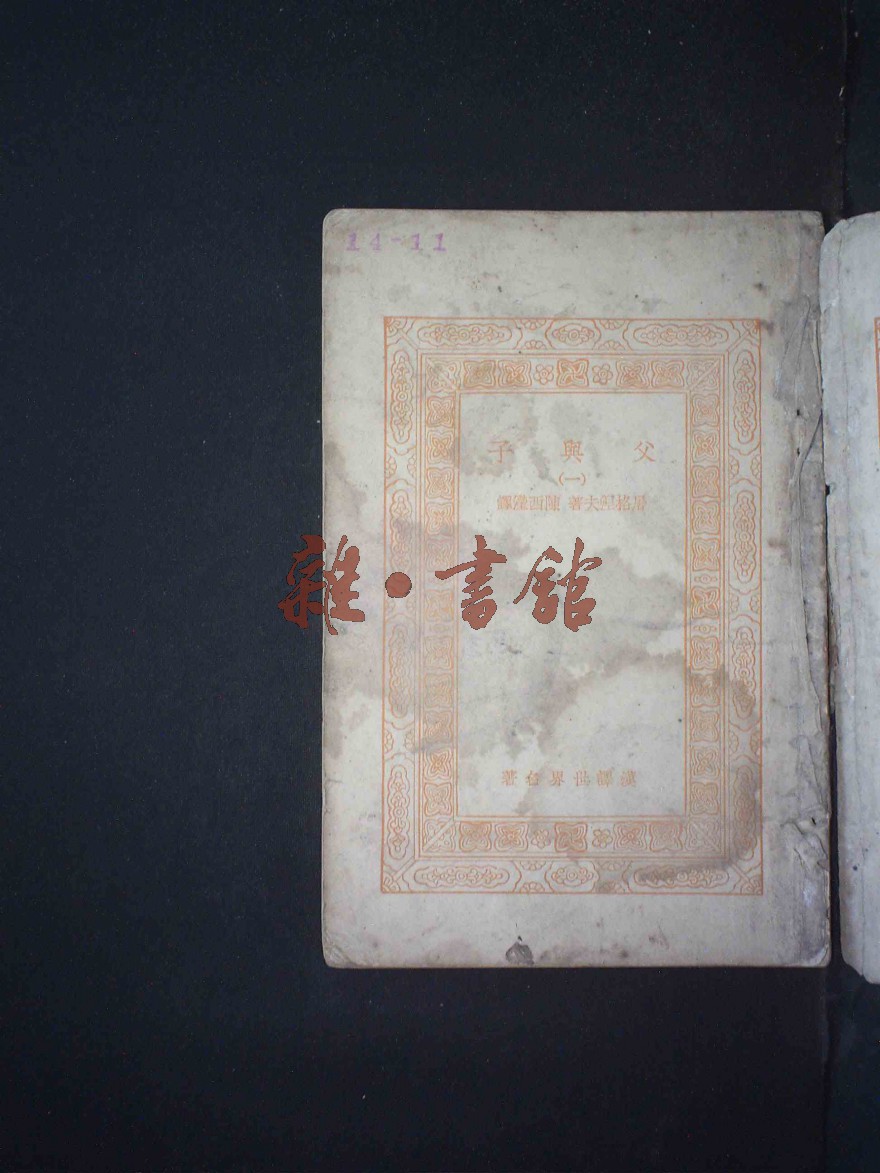 14-11
父與子
(一)
屠格涅夫著 陳西瀅譯
雜·書館
漢譯世界名著